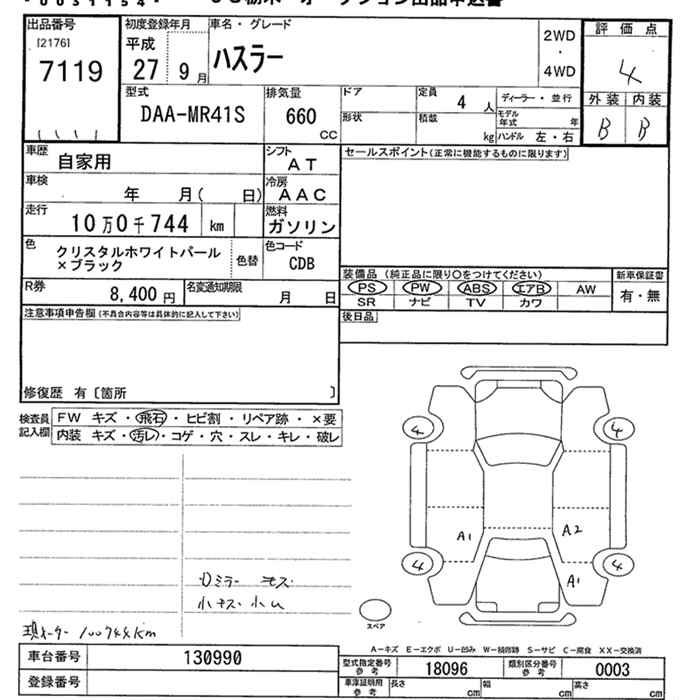 出品番号
[2176]
7119
初度登録年月
平成
27 9月
車名・グレード
ハスラー
2WD
・
4WD
評価点
4
外装 内装
B B
型式
DAA-MR41S
排気量
660
CC
ドア
形状
定員
4人
積載
kg
ディーラー・並行
モデル年式 年
ハンドル 左・右
車歴
自家用
シフト
AT
車検
年 月( 日)
冷房
AAC
走行
10万0千744 km
燃料
ガソリン
色
クリスタルホワイトパール
×ブラック
色替
色コード
CDB
R券
8,400円
名変通知期限
月 日
セールスポイント(正常に機能するものに限ります)
装備品 (純正品に限り○をつけてください)
PS PW ABS エアB AW
SR ナビ TV カワ
新車保証書
有・無
後日品
注意事項申告欄(不具合内容等は具体的に記入して下さい)
修復歴 有〔箇所 〕
検査員
記入欄
FW キズ・飛石・ヒビ割・リペア跡・×要
内装 キズ・汚レ・コゲ・穴・スレ・キレ・破レ
4 4
A1 A2
4 4
A1
スペア
ミラー
小キス 小U
現メーター 100744km
A-キズ E-エクボ U-凹み W-補修跡 S-サビ C-腐食 XX-交換済
車台番号
130990
登録番号
型式指定番号
参考
18096
類別区分番号
参考
0003
車庫証明用
参考
長さ cm
幅 cm
高さ cm